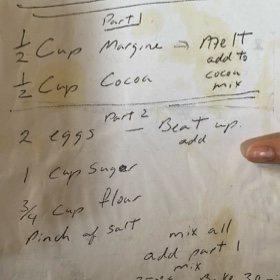 Part 1
1/2 Cup Margine → Melt
add to
1/2 Cup Cocoa cocoa
mix
Part 2
2 eggs — Beat up.
add
1 Cup Suger
3/4 Cup flour
Pinch of salt mix all
add part 1
mix